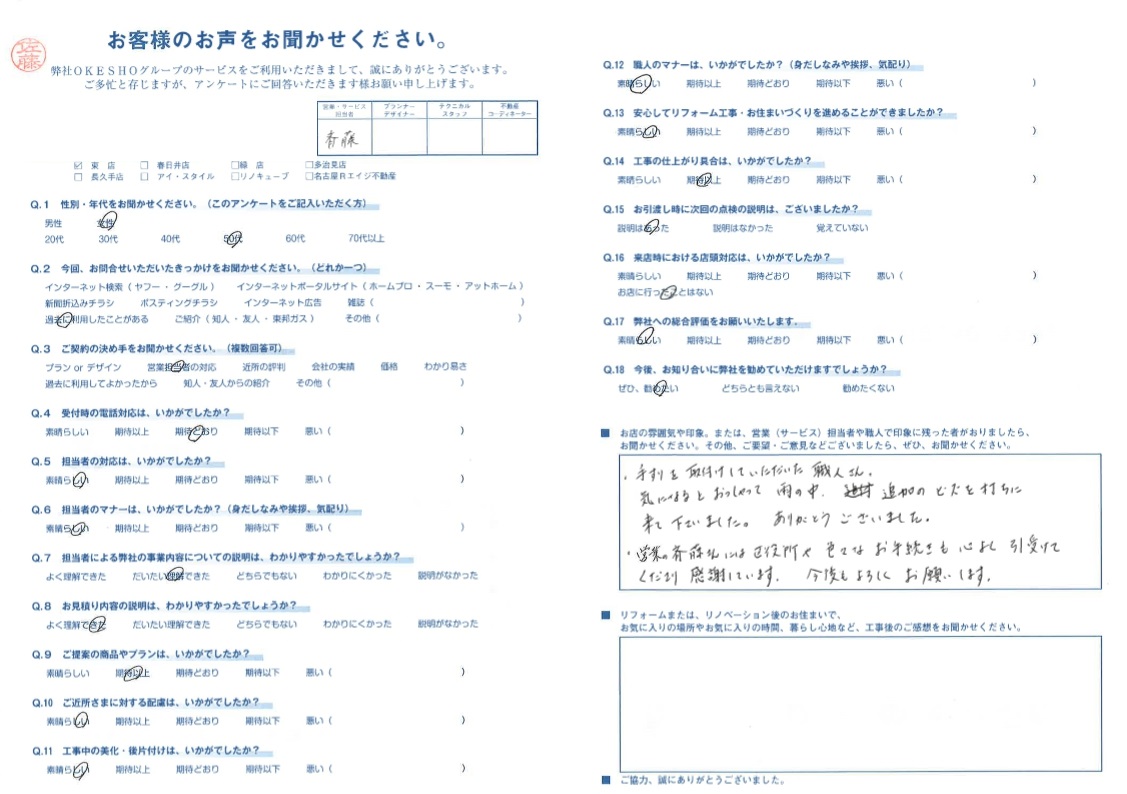 佐藤
お客様のお声をお聞かせください。
弊社OKESHOグループのサービスをご利用いただきまして、誠にありがとうございます。
ご多忙と存じますが、アンケートにご回答いただきます様お願い申し上げます。
営業・サービス担当者名 プランナーデザイナー テクニカルスタッフ 不動産コーディネーター
斉藤
☑ 東 店 □ 春日井店 □緑 店 □多治見店
□ 長久手店 □ アイ・スタイル □リノキューブ □名古屋Rエイジ不動産
Q.1 性別・年代をお聞かせください。（このアンケートをご記入いただく方）
男性 女性
20代 30代 40代 50代 60代 70代以上
Q.2 今回、お問合せいただいたきっかけをお聞かせください。（どれか一つ）
インターネット検索（ ヤフー ・ グーグル ） インターネットポータルサイト（ ホームプロ ・ スーモ ・ アットホーム ）
新聞折込みチラシ ポスティングチラシ インターネット広告 雑誌（ ）
過去に利用したことがある ご紹介（ 知人 ・ 友人 ・ 東邦ガス ） その他（ ）
Q.3 ご契約の決め手をお聞かせください。（複数回答可）
プラン or デザイン 営業担当者の対応 近所の評判 会社の実績 価格 わかり易さ
過去に利用してよかったから 知人・友人からの紹介 その他（ ）
Q.4 受付時の電話対応は、いかがでしたか？
素晴らしい 期待以上 期待どおり 期待以下 悪い（ ）
Q.5 担当者の対応は、いかがでしたか？
素晴らしい 期待以上 期待どおり 期待以下 悪い（ ）
Q.6 担当者のマナーは、いかがでしたか？（身だしなみや挨拶、気配り）
素晴らしい 期待以上 期待どおり 期待以下 悪い（ ）
Q.7 担当者による弊社の事業内容についての説明は、わかりやすかったでしょうか？
よく理解できた だいたい理解できた どちらでもない わかりにくかった 説明がなかった
Q.8 お見積り内容の説明は、わかりやすかったでしょうか？
よく理解できた だいたい理解できた どちらでもない わかりにくかった 説明がなかった
Q.9 ご提案の商品やプランは、いかがでしたか？
素晴らしい 期待以上 期待どおり 期待以下 悪い（ ）
Q.10 ご近所さまに対する配慮は、いかがでしたか？
素晴らしい 期待以上 期待どおり 期待以下 悪い（ ）
Q.11 工事中の美化・後片付けは、いかがでしたか？
素晴らしい 期待以上 期待どおり 期待以下 悪い（ ）
Q.12 職人のマナーは、いかがでしたか？（身だしなみや挨拶、気配り）
素晴らしい 期待以上 期待どおり 期待以下 悪い（ ）
Q.13 安心してリフォーム工事・お住まいづくりを進めることができましたか？
素晴らしい 期待以上 期待どおり 期待以下 悪い（ ）
Q.14 工事の仕上がり具合は、いかがでしたか？
素晴らしい 期待以上 期待どおり 期待以下 悪い（ ）
Q.15 お引渡し時に次回の点検の説明は、ございましたか？
説明はあった 説明はなかった 覚えていない
Q.16 来店時における店頭対応は、いかがでしたか？
素晴らしい 期待以上 期待どおり 期待以下 悪い（ ）
お店に行ったことはない
Q.17 弊社への総合評価をお願いいたします。
素晴らしい 期待以上 期待どおり 期待以下 悪い（ ）
Q.18 今後、お知り合いに弊社を勧めていただけますでしょうか？
ぜひ、勧めたい どちらとも言えない 勧めたくない
■ お店の雰囲気や印象。または、営業（サービス）担当者や職人で印象に残った者がおりましたら、
お聞かせください。その他、ご要望・ご意見などございましたら、ぜひ、お聞かせください。
・手すりを取付けしていただいた職人さん。
気になるとおっしゃって雨の中、追加のビスを打ちに
来て下さいました。ありがとうございました。
・営業の斉藤さんには区役所や色々なお手続きも心よく引受けて
くださり感謝しています。今後もよろしくお願いします。
■ リフォームまたは、リノベーション後のお住まいで、
お気に入りの場所やお気に入りの時間、暮らし心地など、工事後のご感想をお聞かせください。
■ ご協力、誠にありがとうございました。